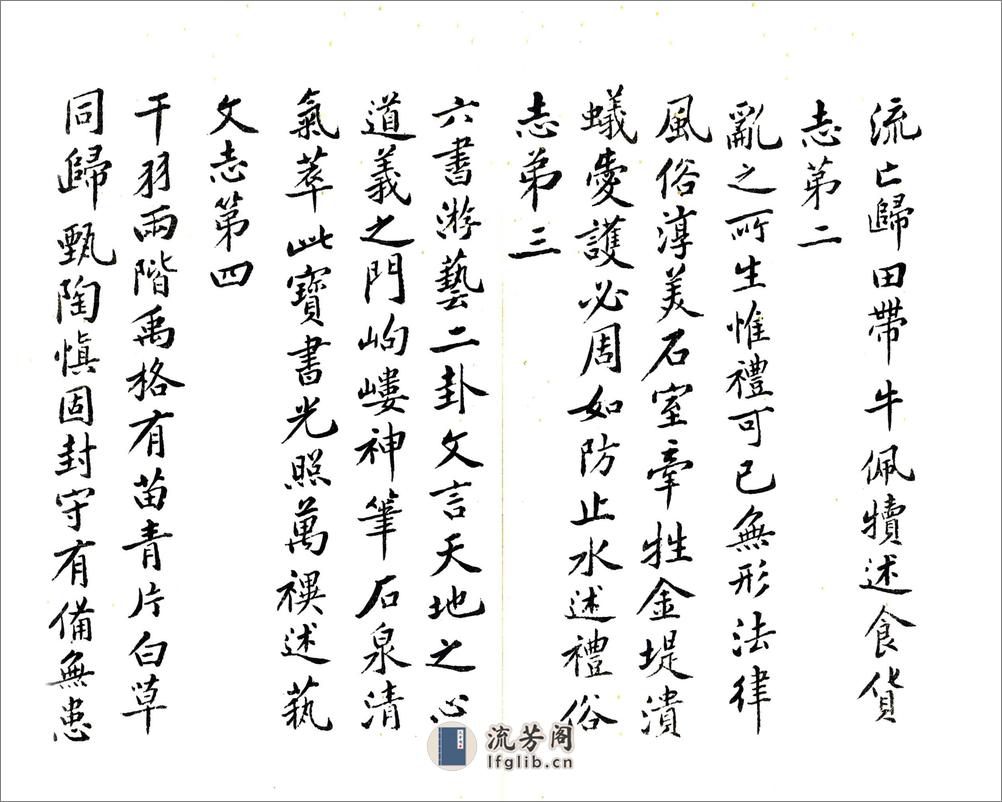 流亡歸田帶牛佩犢述食貨
志第二
亂之所生惟禮可已無形法律
風俗淳美石室牽牲金堤潰
蟻愛護必周如防止水述禮俗
志第三
六書游藝二卦文言天地之心
道義之門岣嶁神筆石泉清
氣萃此寶書光照萬禩述藝
文志第四
干羽兩階禹格有苗青片白草
同歸甄陶慎固封守有備無患
流芳阁
lfglib.cn